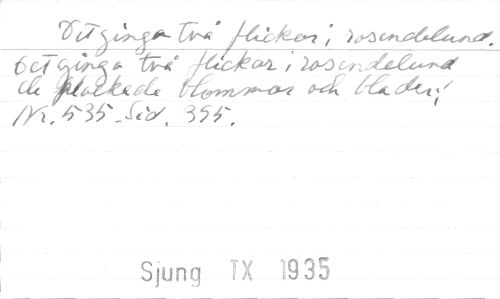 Det ginga två flickor i rosendelund.
Det ginga två flickor i rosendelund
de plockade blommor och blader;
Nr. 535. Sid. 355.
Sjung TX 1935